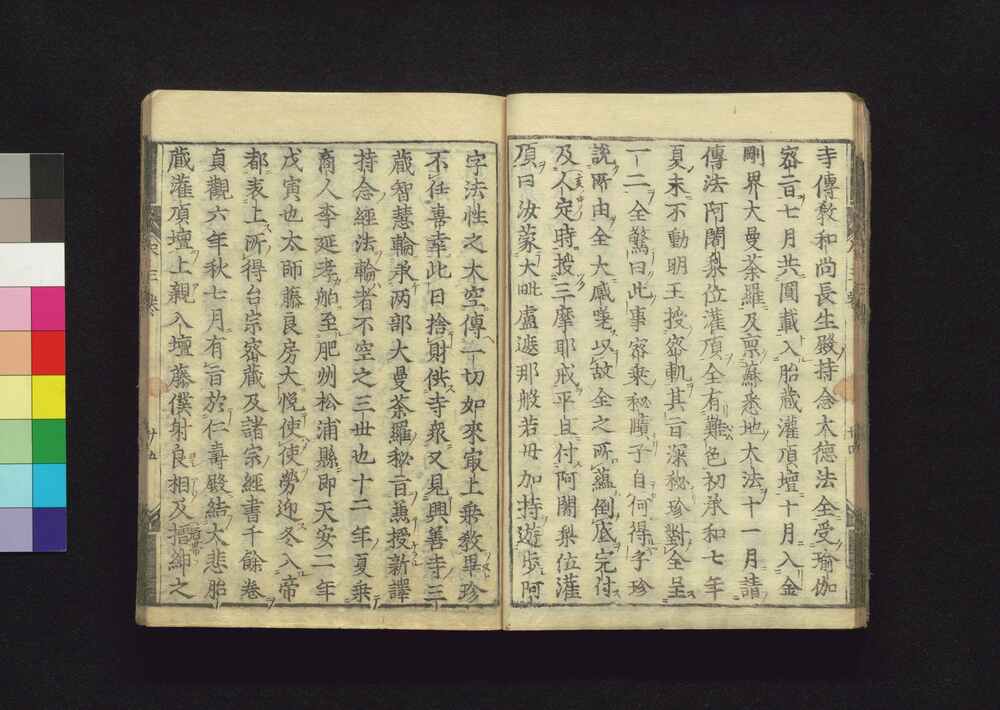 寺傳教和尚長生殿持念大德法全受瑜伽
密㫖七月共圓載入胎藏灌頂壇十月入金
剛界大曼荼羅及禀蘇悉地大法十一月請
傳法阿闍梨位灌頂全有難色初承和七年
夏末不動明王授密軌其㫖深秘珍對全呈
一二全驚曰此事密乘秘賾子自何得乎珍
說所由全大感嘆以故全之所蘊倒底完付
及不定時授三摩耶戒平旦付阿闍梨位灌
頂曰汝蒙大毗盧遮那般若母加持遊步阿
字法性之大空傳一切如來㝡上乘教畢珍
不任喜幸此日捨財供寺衆又見興善寺三
藏智慧輪承两部大曼荼羅秘㫖兼授新譯
持念經法輪者不空之三世也十二年夏乘
商人李延孝舶至肥州松浦縣即天安二年
戊寅也太師藤良房大悅使使勞迎冬入帝
都表上所得台宗密藏及諸宗經書千餘卷
貞觀六年秋七月有㫖於仁壽殿結大悲胎
藏灌頂壇上親入壇藤僕射良相及搢紳之
廿五